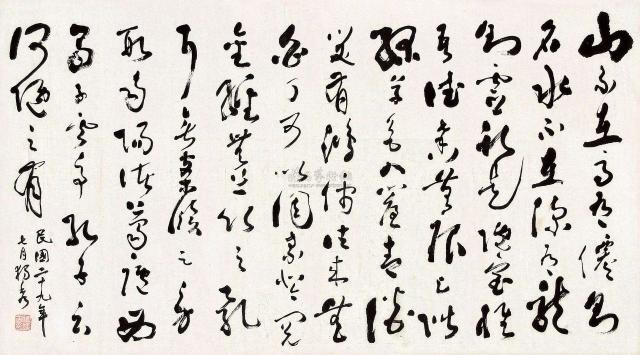 山不在高有僊則
名水不在深有龍
則靈斯是陋室惟
吾德馨苔痕上階
綠草色入簾青談
笑有鴻儒往來無
白丁可以調素琴閱
金經無絲竹之亂
耳無案牘之勞
形南陽諸葛廬西
蜀子雲亭孔子云
何陋之有
民國二十九年
七月